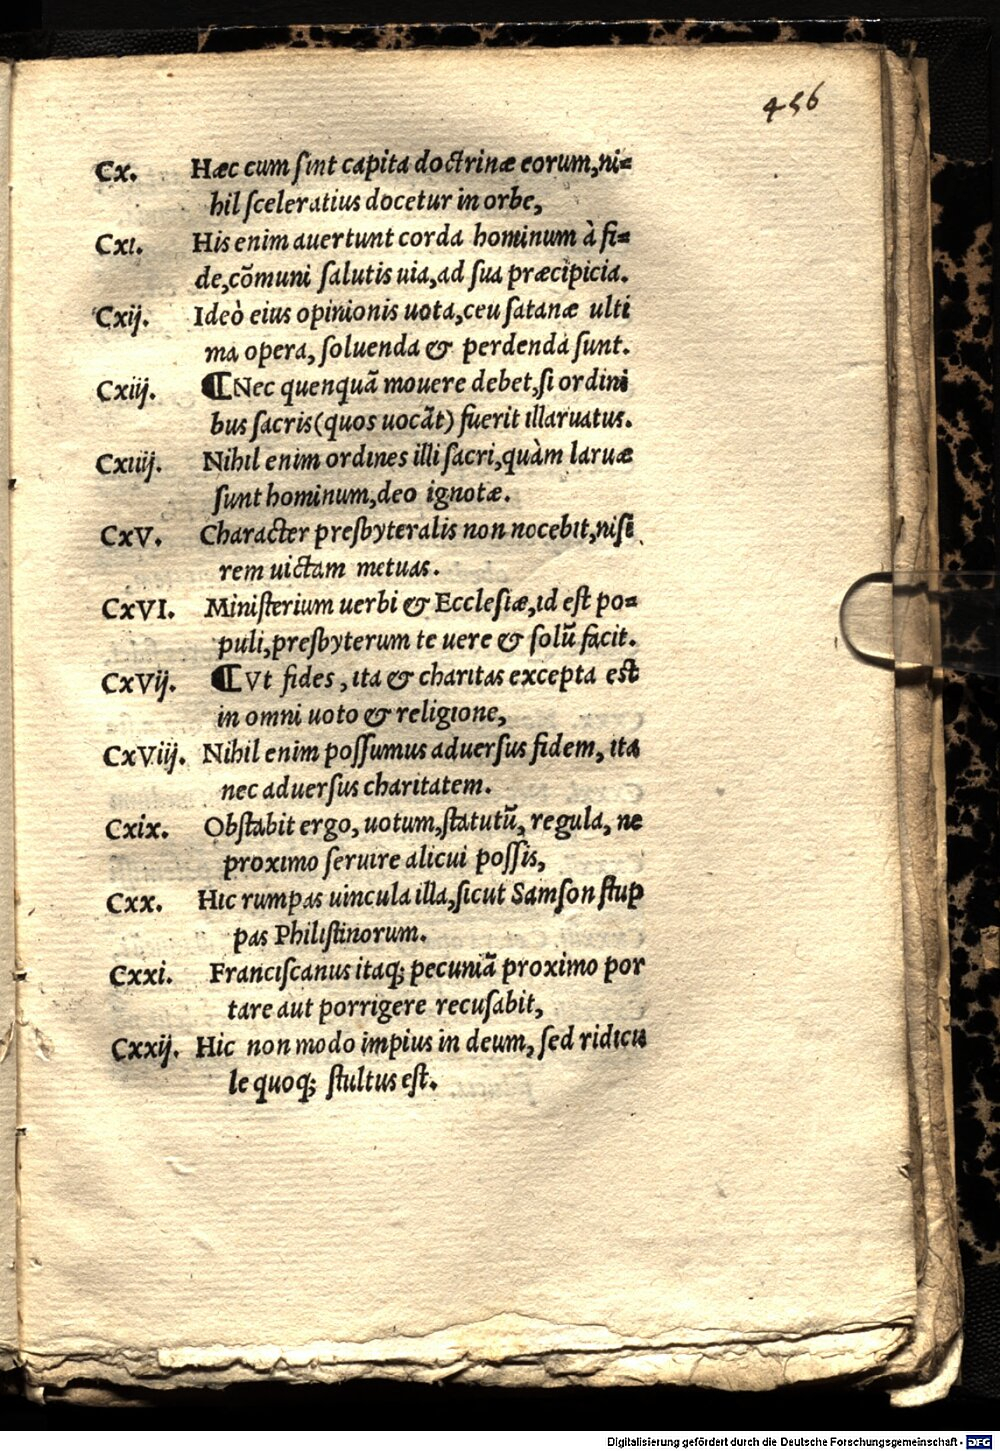 456
Cx. Hæc cum ſint capita doctrinæ eorum,ni=
hil ſceleratius docetur in orbe,
Cxi. His enim auertunt corda hominum à fi=
de,cõmuni ſalutis uia,ad ſua præcipicia.
Cxij. Ideò eius opinionis uota,ceu ſatanæ ulti
ma opera, ſoluenda & perdenda ſunt.
Cxiij. ¶Nec quenquã mouere debet,ſi ordini
bus ſacris(quos uocãt) fuerit illaruatus.
Cxiiij. Nihil enim ordines illi ſacri,quàm laruæ
ſunt hominum,deo ignotæ.
CxV. Character preſbyteralis non nocebit,niſi
rem uictam metuas.
CxVI. Miniſterium uerbi & Eccleſiæ,id eſt po=
puli,preſbyterum te uere & ſolũ facit.
CxVij. ¶Vt fides, ita & charitas excepta eſt
in omni uoto & religione,
CxViij. Nihil enim poſſumus aduerſus fidem, ita
nec aduerſus charitatem.
Cxix. Obſtabit ergo, uotum,ſtatutũ, regula, ne
proximo ſeruire alicui poſſis,
Cxx. Hic rumpas uincula illa,ſicut Samſon ſtup
pas Philiſtinorum.
Cxxi. Franciſcanus itaq; pecuniã proximo por
tare aut porrigere recuſabit,
Cxxij. Hic non modo impius in deum, ſed ridicu
le quoq; ſtultus eſt.
Digitalisierung gefördert durch die Deutsche Forschungsgemeinschaft - DFG